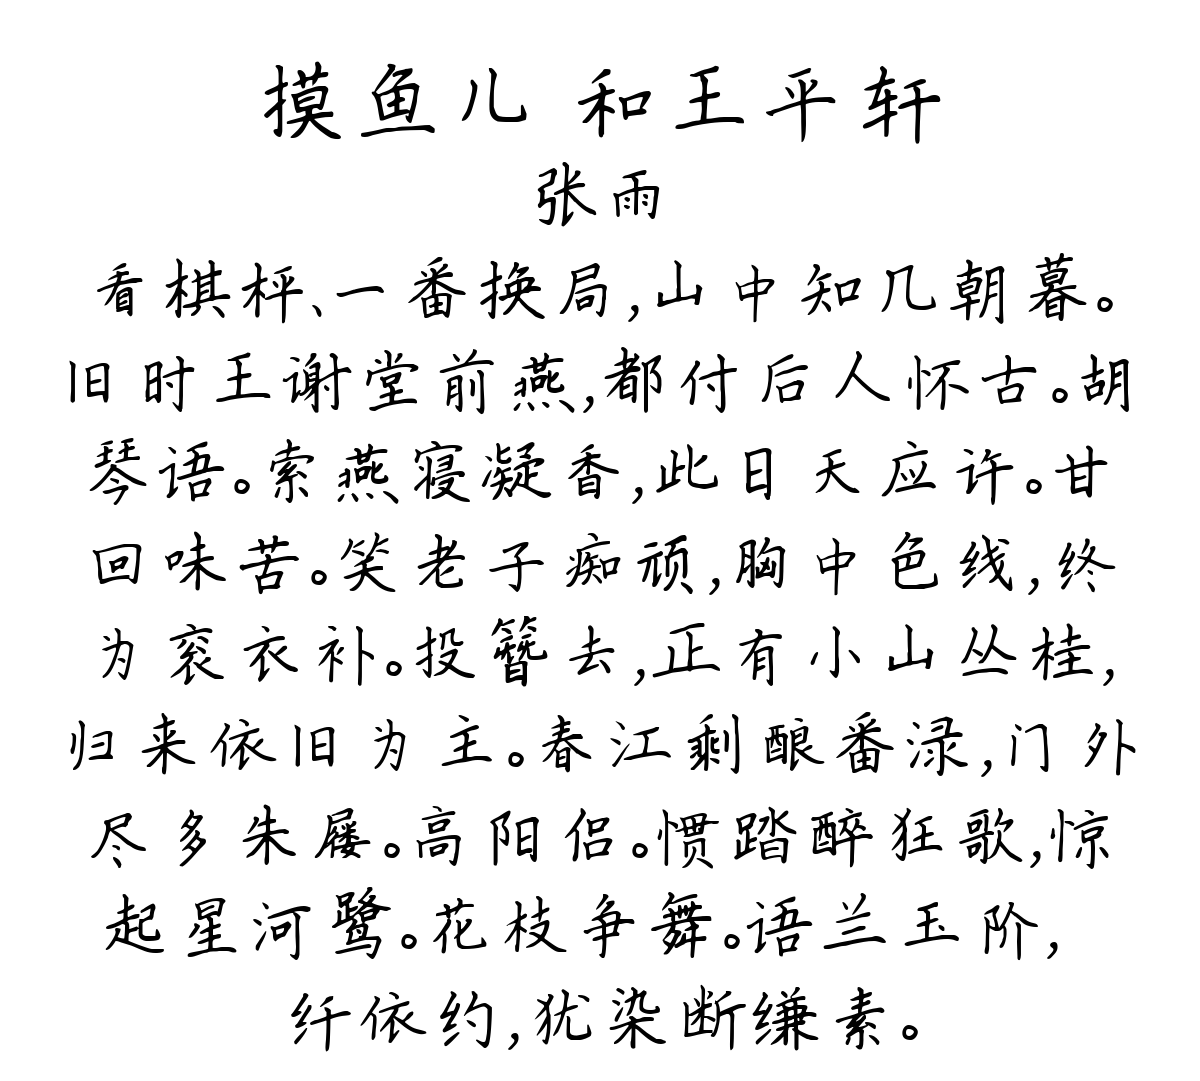 摸鱼儿 和王平轩
张雨
看棋枰、一番换局,山中知几朝暮。
旧时王谢堂前燕,都付后人怀古。胡
琴语。索燕寝凝香,此日天应许。甘
回味苦。笑老子痴顽,胸中色线,终
为衮衣补。投簪去,正有小山丛桂,
归来依旧为主。春江剩酿番渌,门外
尽多朱屦。高阳侣。惯踏醉狂歌,惊
起星河鹭。花枝争舞。语兰玉阶,
纤依约,犹染断缣素。